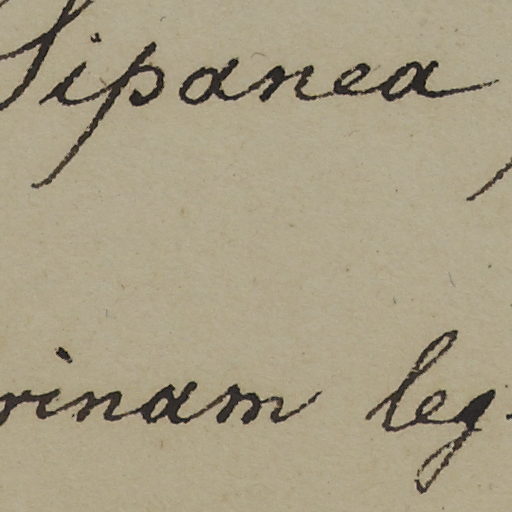 Sipanea
rinam leg.